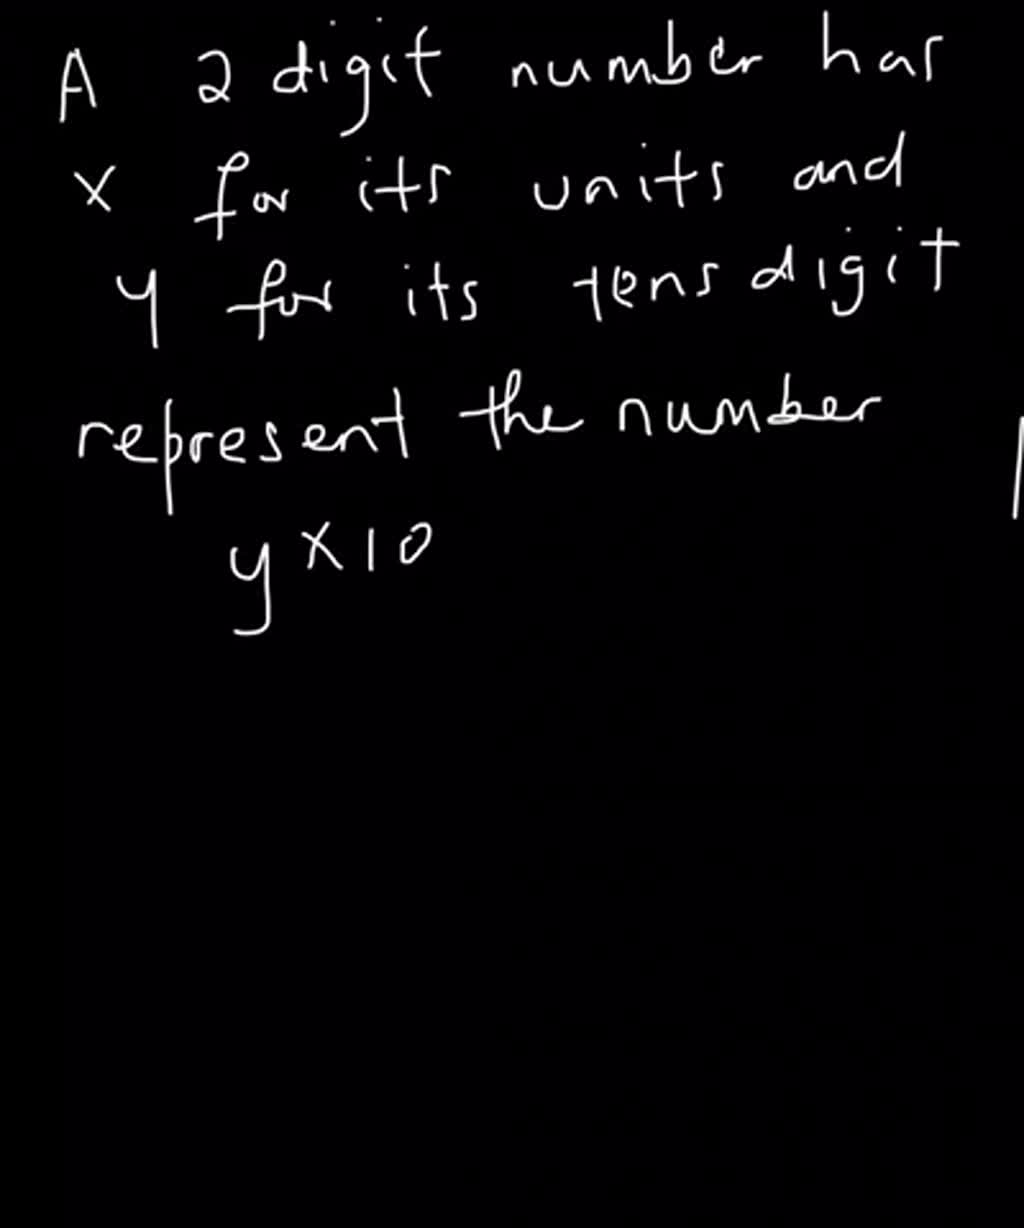 A 2 digit number has
x for its units and
y for its tens digit
represent the number
y × 10